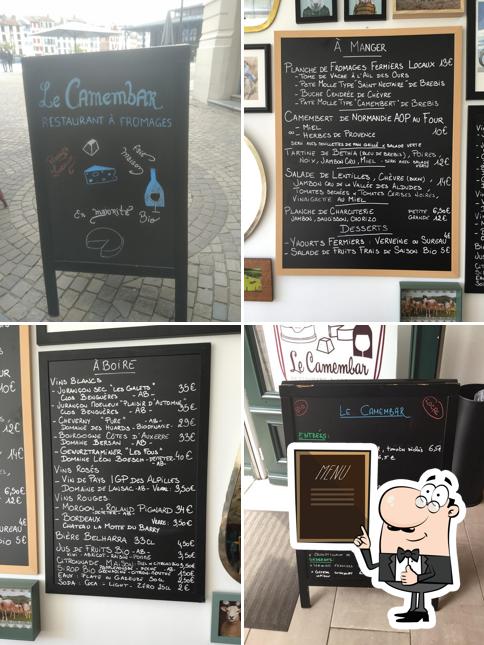 Le Camembar
RESTAURANT À FROMAGES
Bio
À MANGER
PLANCHE DE FROMAGES FERMIERS LOCAUX 13€
- TOME DE VACHE À L'AIL DES OURS
- PÂTE MOLLE TYPE SAINT NECTAIRE DE BREBIS
- BUCHE CENDRÉE DE CHÈVRE
- PÂTE MOLLE TYPE "CAMEMBERT" DE BREBIS
CAMEMBERT DE NORMANDIE AOP AU FOUR
- MIEL 10€
ou - HERBES DE PROVENCE
TARTINE DE BETHIA (BLEU DE BREBIS), POIRES
NOIX, JAMBON CRU, MIEL - SERVI AVEC SALADE VERTE 12€
SALADE DE LENTILLES, CHÈVRE (BUCHE),
JAMBON CRU DE LA VALLÉE DES ALDUDES, 14€
TOMATES SÉCHÉES & TOMATES CERISES NOIRES,
VINAIGRETTE AU MIEL
PLANCHE DE CHARCUTERIE PETITE 6,50€
JAMBON, SAUCISSON, CHORIZO GRANDE 12€
DESSERTS
- YAOURTS FERMIERS : VERVEINE OU SUREAU 4€
- SALADE DE FRUITS FRAIS DE SAISON BIO 5€
À BOIRE
VINS BLANCS
- JURANÇON SEC "LES GALETS" 35€
CLOS BENGUÈRES - AB -
- JURANÇON MOELLEUX "PLAISIR D'AUTOMNE"
CLOS BENGUÈRES - AB - 35€
- CHEVERNY "PURE" - AB - 29€
DOMAINE DES HUARDS - BIODYNAMIE -
- BOURGOGNE CÔTES D'AUXERRE 33€
DOMAINE BERSAN - AB -
- GEWURZTRAMINER "LES FOUS"
DOMAINE LÉON BOESCH - DEMETER - AB - 40€
VINS ROSÉS
- VIN DE PAYS IGP DES ALPILLES
DOMAINE DE LANSAC - AB - VERRE : 3,50€
VINS ROUGES
- MORGON - ROLAND PIGNARD 34€
- BORDEAUX VERRE : 3,50€
CHATEAU LA MOTTE DU BARRY
BIÈRE BELHARRA 33CL 4,50€
JUS DE FRUITS BIO - AB - 3,50€
CITRONNADE MAISON 3,50€
SIROP BIO
EAUX : PLATE OU GAZEUSE 50CL 2,50€
SODA : COCA - LIGHT - ZÉRO 33CL 2€
Le Camembar
LE CAMEMBAR
ENTRÉES:
MENU